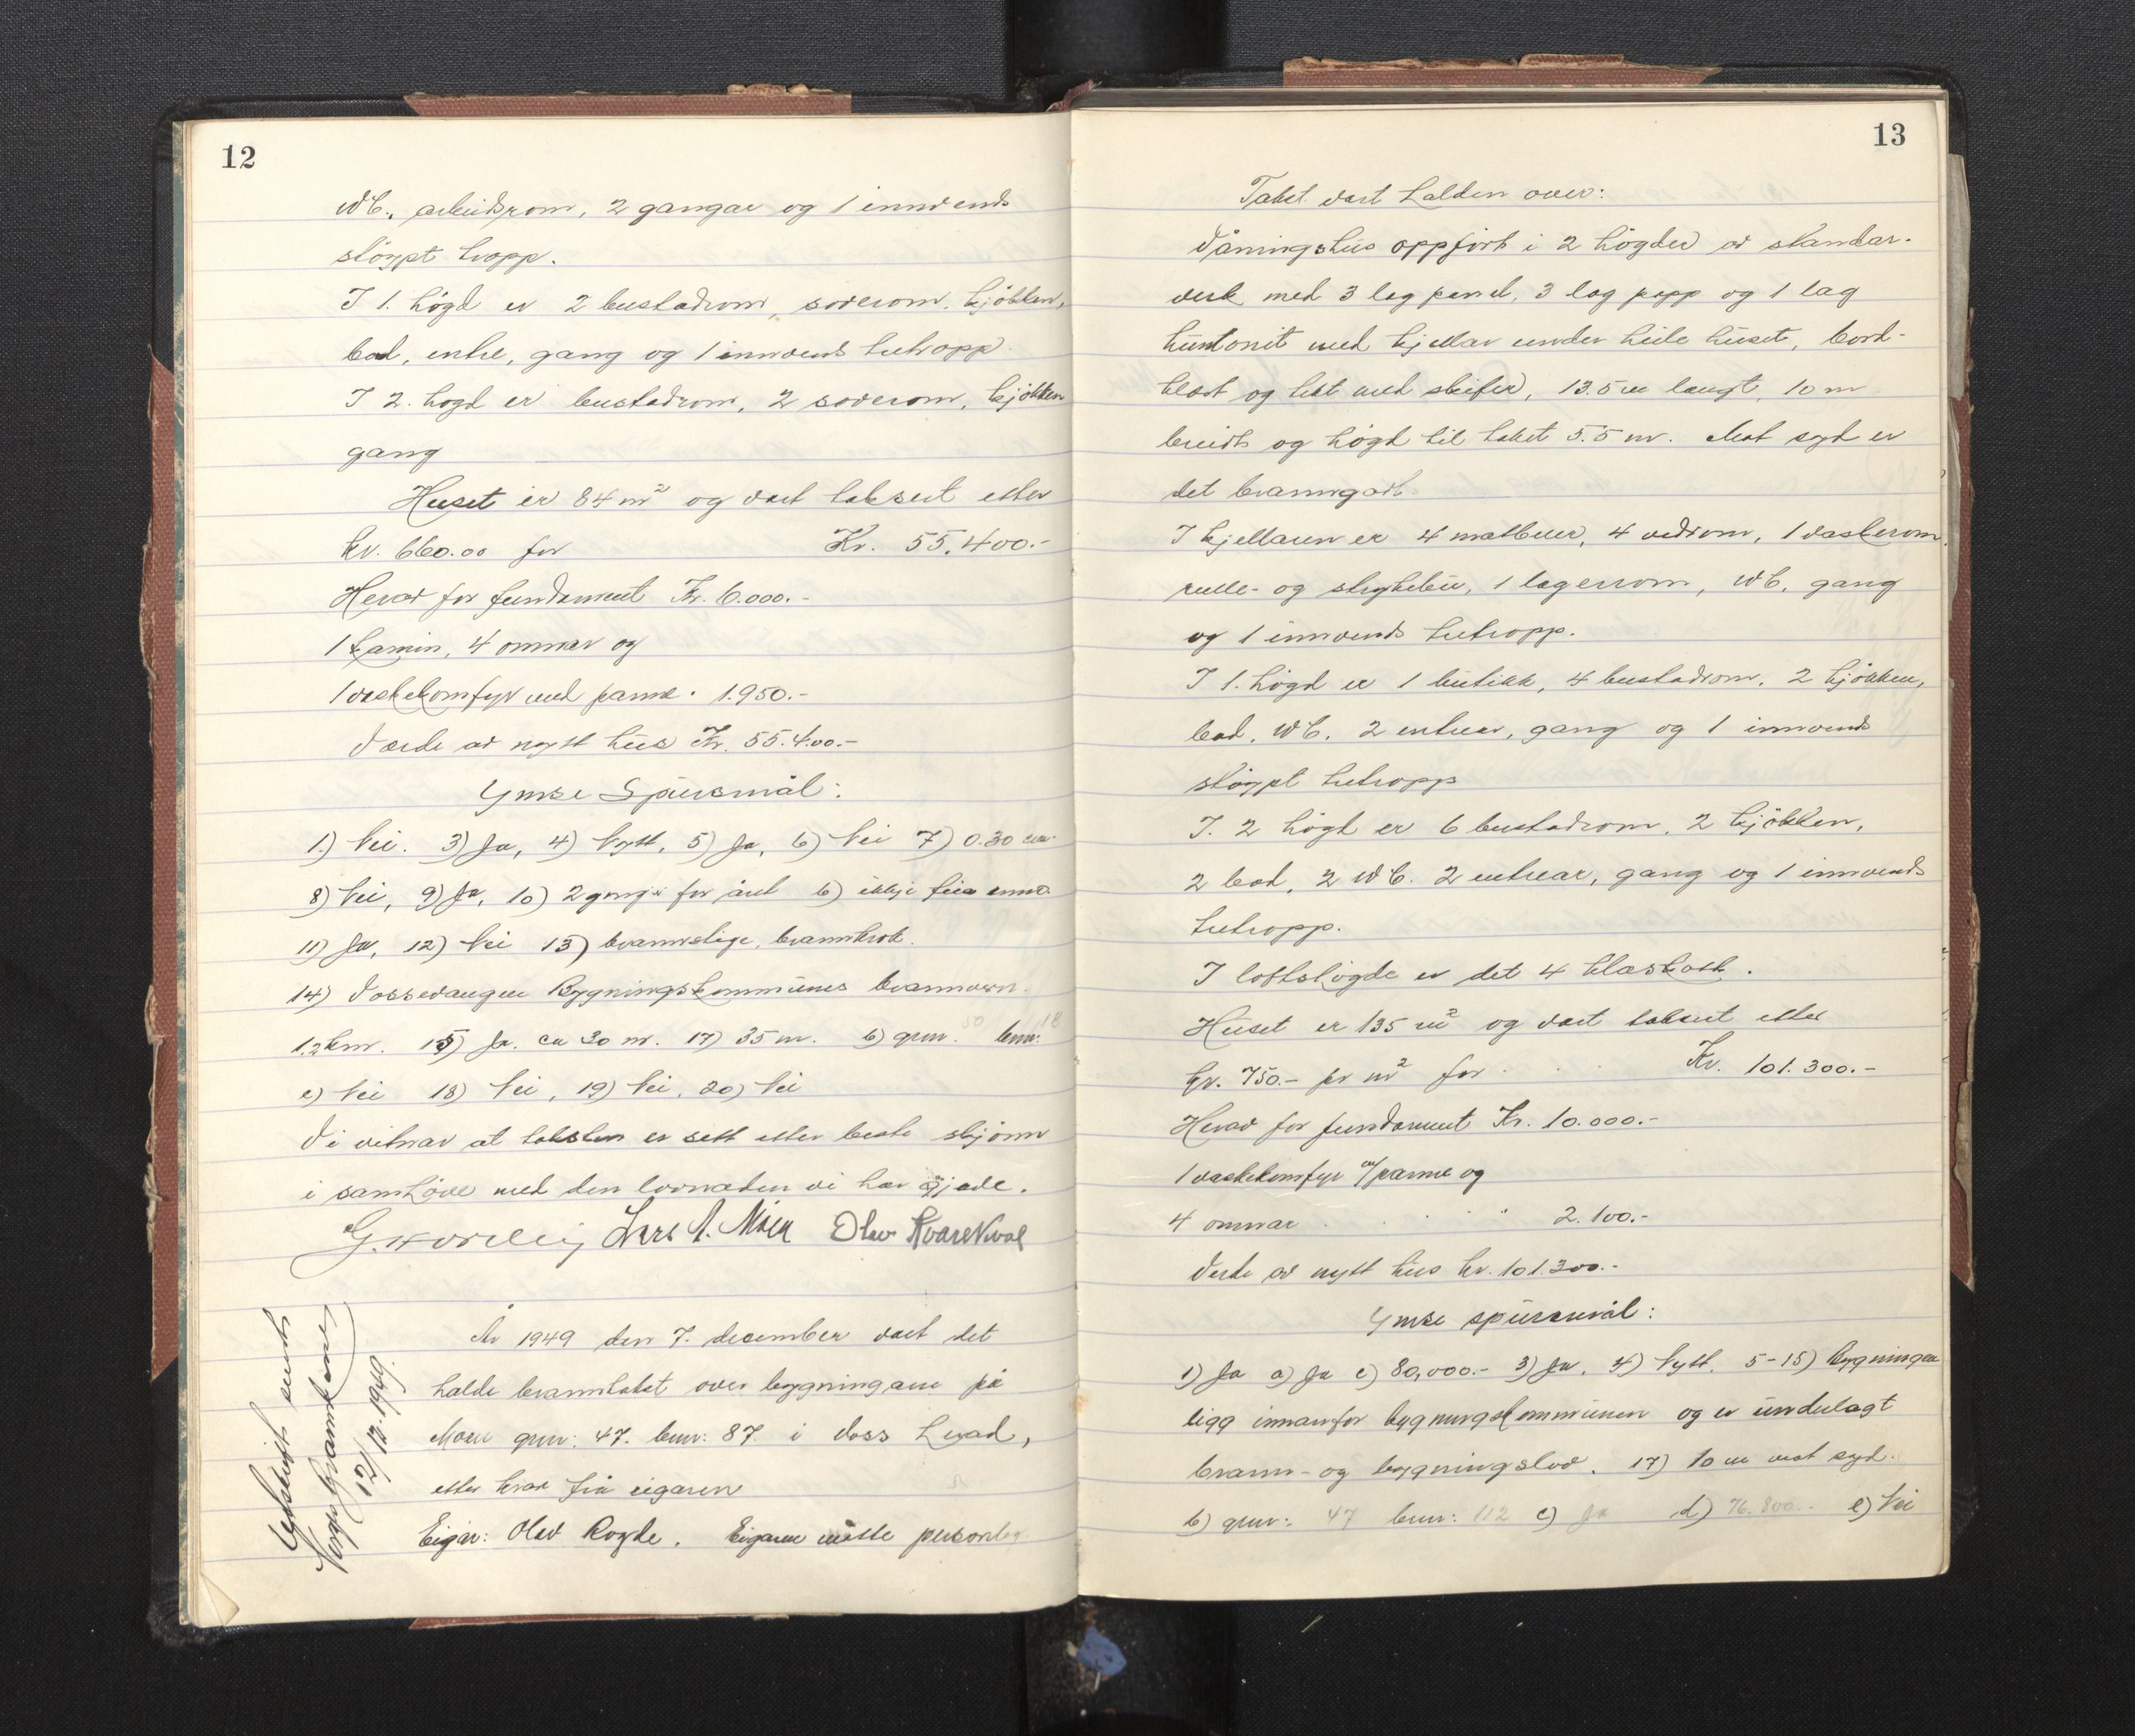 12
WC., arbeidsrom, 2 gangar og 1 innvends
støypt tropp.
I 1. høgd er 2 bustadrom, soverom, kjøkken,
bad, entre, gang og 1 innvends tretropp.
I 2. høgd er bustadrom, 2 soverom, kjøkken
gang
Huset er 84 m² og vart taksert etter
kr. 660.00 for Kr. 55.400.-
Herav for fundament Kr. 6.000.-
1 kamin, 4 omnar og
1 vaskekomfyr med panne " 1.950.-
Verde av nytt hus Kr. 55.400.-
Ymse Spursmål:
1) Nei. 3) Ja, 4) Nytt, 5) Ja, 6) Nei 7) 0.30 cm.
8) Nei, 9) Ja, 10) 2 gonger for året b) ikkje feia enno.
11) Ja, 12) Nei 13) brannstige, brannkrok.
14) Vossevangen Bygningskommunes brannvern.
1.2 km. 15) Ja. ca 30 m. 17) 35 m. b) gnr. 50 bnr: 18
e) Nei 18) Nei, 19) Nei, 20) Nei
Vi vitnar at taksten er sett etter beste skjønn
i samhøve med den lovnaden vi har gjeve.
Lars A. Møen Olav Kvarekval
Utskrift sendt
Norges Brannkasse
12/12.1949.
År 1949 den 7. december vart det
halde branntakst over bygningane på
Moen gnr: 47. bnr: 87. i Voss herad,
etter krav frå eigaren
Eigar: Olav Rogde. Eigaren møtte personleg
13
Takst vart halden over:
Våningshus oppført i 2 høgder av standar-
verk med 3 lag panel, 3 lag papp og 1 lag
huntonit med kjellar under heile huset, bord-
klædt og tekt med skifer, 13.5 m langt, 10 m
breidt og høgd til taket 5.5 m. Mot syd er
det branngavl.
I kjellaren er 4 matbuer, 4 vedrom, 1 vaskerom,
rulle- og strykebu, 1 lagerrom, WC, gang
og 1 innvends tretropp.
I 1. høgd er 1 butikk, 4 bustadrom, 2 kjøkken,
bad, WC. 2 entrear, gang og 1 innvends
støypt tretropp
I. 2 høgd er 6 bustadrom, 2 kjøkken,
2 bad, 2 WC. 2 entrear, gang og 1 innvends
tretropp.
I loftshøgde er det 4 klæskott.
Huset er 135 m² og vart taksert etter
kr. 750.- pr m² for Kr. 101.300.-
Herav for fundament Kr. 10.000.-
1 vaskekomfyr m/panne og
4 omnar " 2.100.-
Verde av nytt hus kr. 101.300.-
Ymse spursmål:
1) Ja a) Ja c) 80,000.- 3) Ja, 4) Nytt. 5-15) Bygningen
ligg innanfor bygningskommunen og er underlagt
brann- og bygningslov. 17) 10 m mot syd.
b) gnr: 47 bnr: 112 c) Ja d) 76.800.- e) Nei